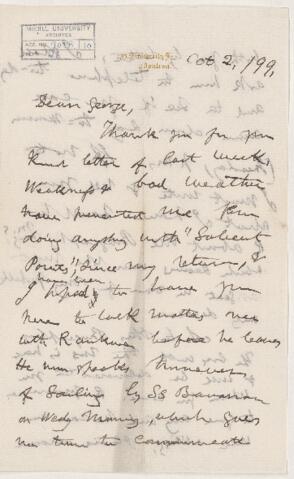 McGILL UNIVERSITY
ARCHIVES
ACC. NO.
Oct 2, 199,
Dear George,
Thank you for your
kind letter of last week,
Weakness & bad weather
have prevented me from
doing anything with "Salient
Points" since my return, &
I hoped to have you
here to talk matters over
with Rankine before he leaves
He now speaks
of Sailing by SS Bavarian
on Wedy Morning, which gives
no time to